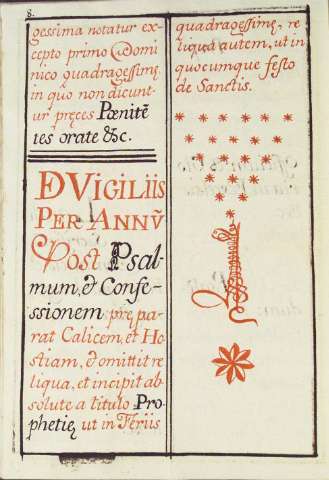 8.
gessima notatur ex-
cepto primo Domi
nico quadragessimę,
in quo non dicunt-
ur pręces Pœnitē
tes orate &c.
D VIGILIIS
PER ANNŪ
Post Psal-
mum, & Confe-
ssionem prępa-
rat Calicem, et Ho
stiam, & omittit re
liqua, et incipit ab
solute a titulo Pro-
phetię, ut in Feriis
quadragessimę, re
liqua autem, ut in
quocumque festo
de Sanctis.